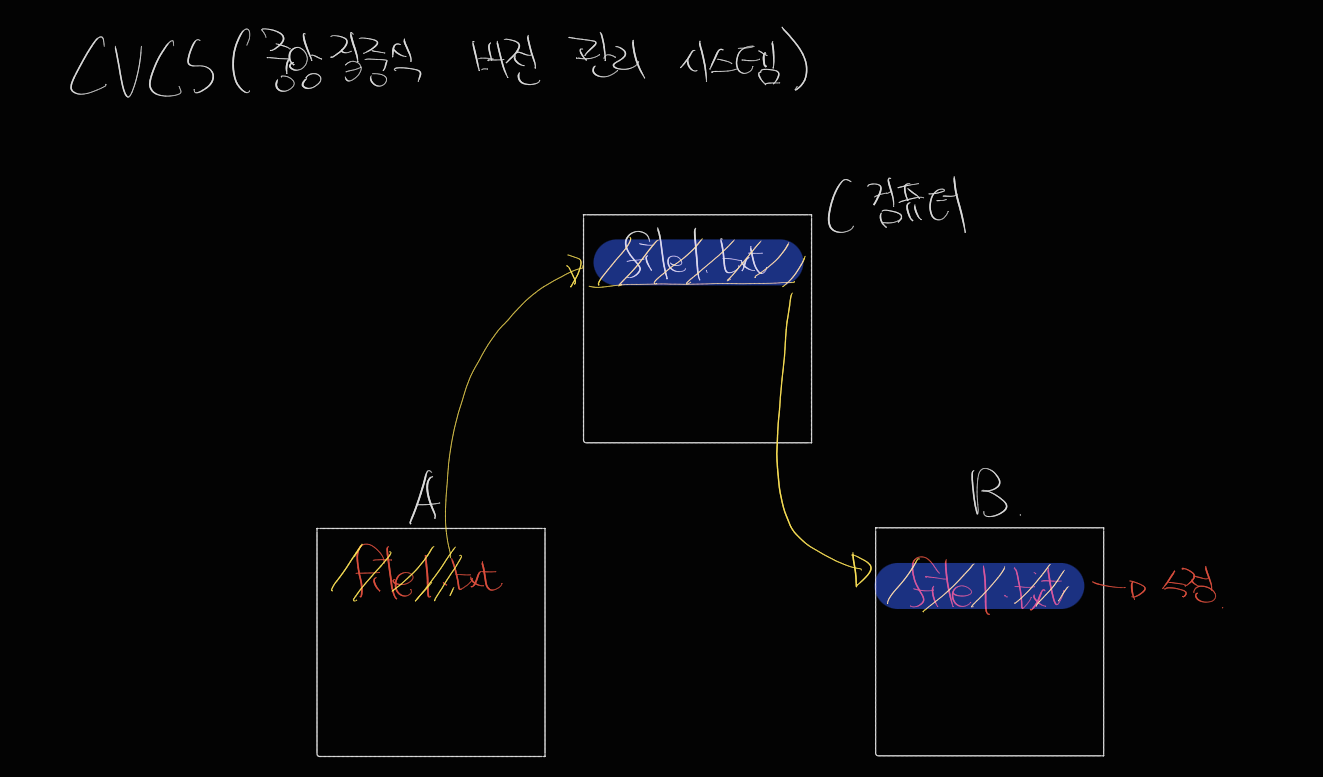 CVCS (중앙집중식 버전 관리 시스템)
C 컴퓨터
file1.txt
A
B.
file1.txt
file1.txt → 수정.